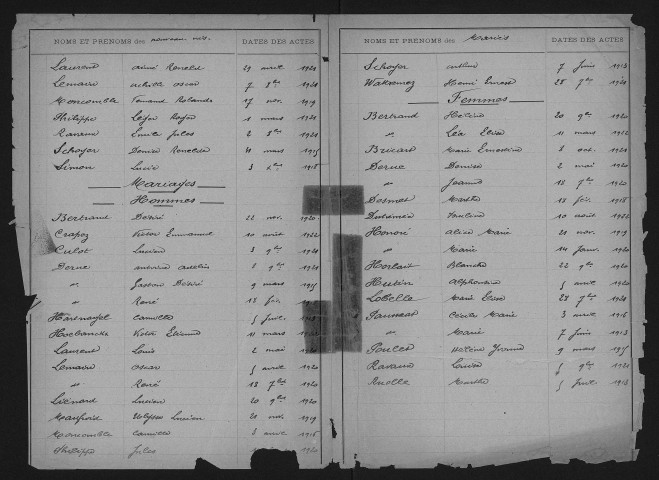 NOMS ET PRÉNOMS des nouveau-nés. DATES DES ACTES
Laurent Aimé Renold 29 avril 1921
Lemaire Achille Oscar 7 8bre 1921
Moncomble Fernand Rolande 17 nov. 1919
Philippe 1 mars 1921
Ravaux Emile Jules 2 8bre 1921
Schoger Denise 31 mars 1915
Simon Lucie 3 1918
Mariages
Hommes
Bertrand Désiré 22 nov. 1920
Crapez Victor Emmanuel 10 août 1922
Culot Lucien 3 9bre 1921
Derue 8 9bre 1921
" Gaston Désiré 9 mars 1915
" René 18 fév.
Camille 5 juil.
Victor Etienne 11 mars
Laurent Louis 2 mai
Lemaire Oscar 5 avril 1920
" René 18 7bre 1920
Liénard Lucien 20 9bre 1920
Ulysse Lucien 21 nov. 1919
Moncomble Camille 3 avril 1916
Philippe Jules 1920
NOMS ET PRÉNOMS des Mariés DATES DES ACTES
Schoger Arthur 7 juin 1913
Henri Ernest 28 7bre 1921
Femmes
Bertrand Hélène 20 9bre 1920
" Léa Elise 11 mars 1922
Bricard Marie Ernestine 8 oct. 1921
Derue Denise 2 mai 1920
" Jeanne 18 7bre 1920
Desmet Marthe 18 fév. 1918
Pauline 10 août 1922
Honoré Aline Marie 21 nov. 1919
" Marie 14 janv. 1920
Horlait Blanche 22 9bre 1920
Hutin Alphonsine 5 avril 1920
Lobelle Marie Elise 28 7bre 1921
Cécile Marie 3 avril 1916
" Marie 7 juin 1913
Poulet Hélène Yvonne 9 mars 1915
Ravaux Louise 5 9bre 1921
Ruelle Marthe 5 juil 1913